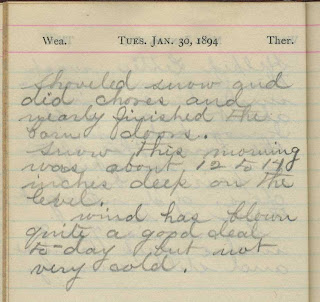 Wea. TUES. JAN. 30, 1894 Ther.
Shoveled snow and
did chores and
nearly finished the
barn doors.
Snow this morning
was about 12 to 14
inches deep on the
level.
wind has blown
quite a good deal
to-day but not
very cold.